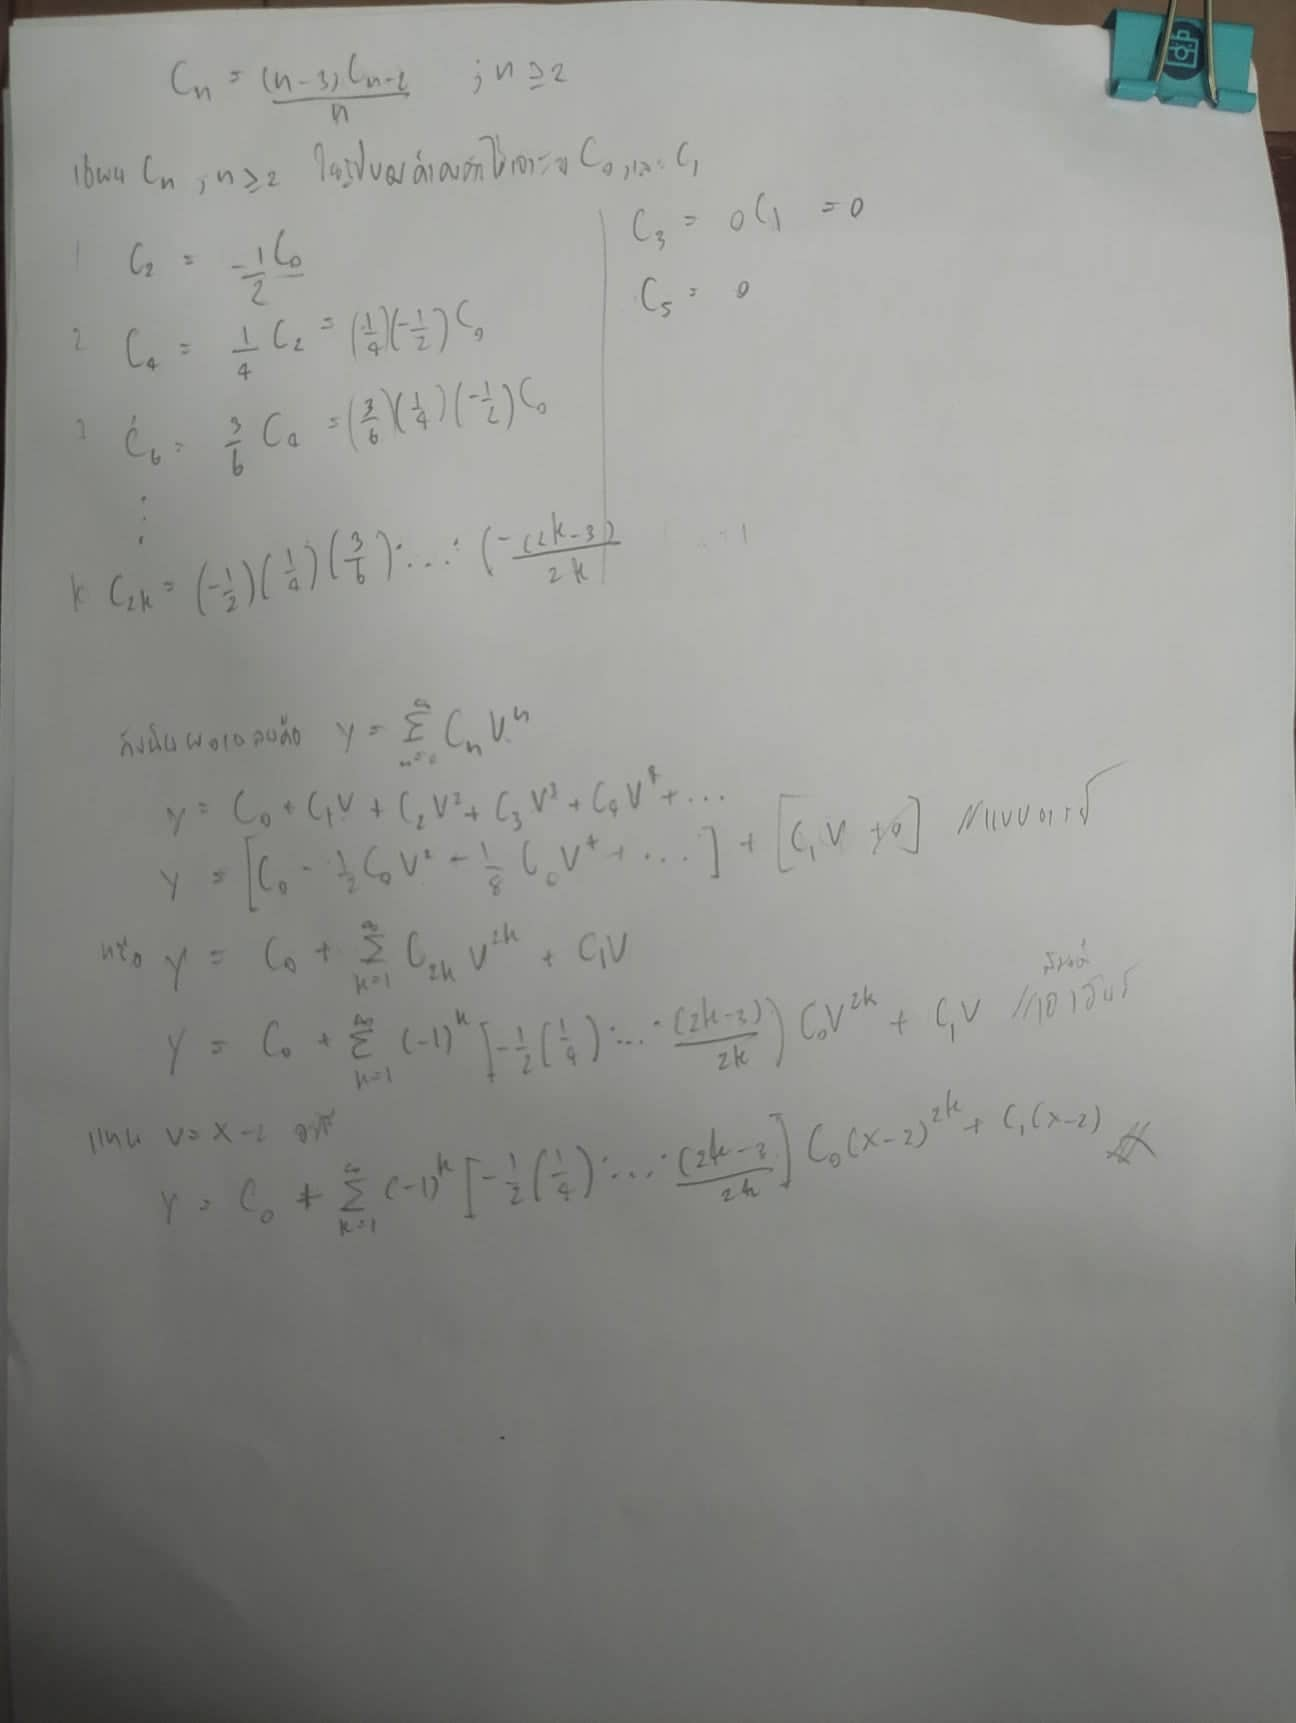 Cn = (n-3)Cn-2 / n ; n ≥ 2
เขียน Cn ; n ≥ 2 C0 และ C1
1 C2 = -1/2 C0
2 C4 = 1/4 C2 = (1/4)(-1/2) C0
3 C6 = 3/6 C4 = (3/6)(1/4)(-1/2) C0
⋮
k C2k = (-1/2)(1/4)(3/6)·...·(-(2k-3)/2k)
C3 = 0C1 = 0
C5 = 0
ดังนั้นผลเฉลยคือ y = Σ n=0 ∞ Cn V^n
y = C0 + C1V + C2V² + C3V³ + C4V⁴ + ...
y = [C0 - 1/2 C0V² - 1/8 C0V⁴ + ...] + [C1V + 0]
หรือ y = C0 + Σ k=1 ∞ C2k V^2k + C1V
y = C0 + Σ k=1 ∞ (-1)^k [-1/2(1/4)·...·(2k-3)/2k) C0V^2k + C1V
แทน V = x-2 จะได้
y = C0 + Σ k=1 ∞ (-1)^k [-1/2(1/4)·...·(2k-3/2k] C0(x-2)^2k + C1(x-2) #